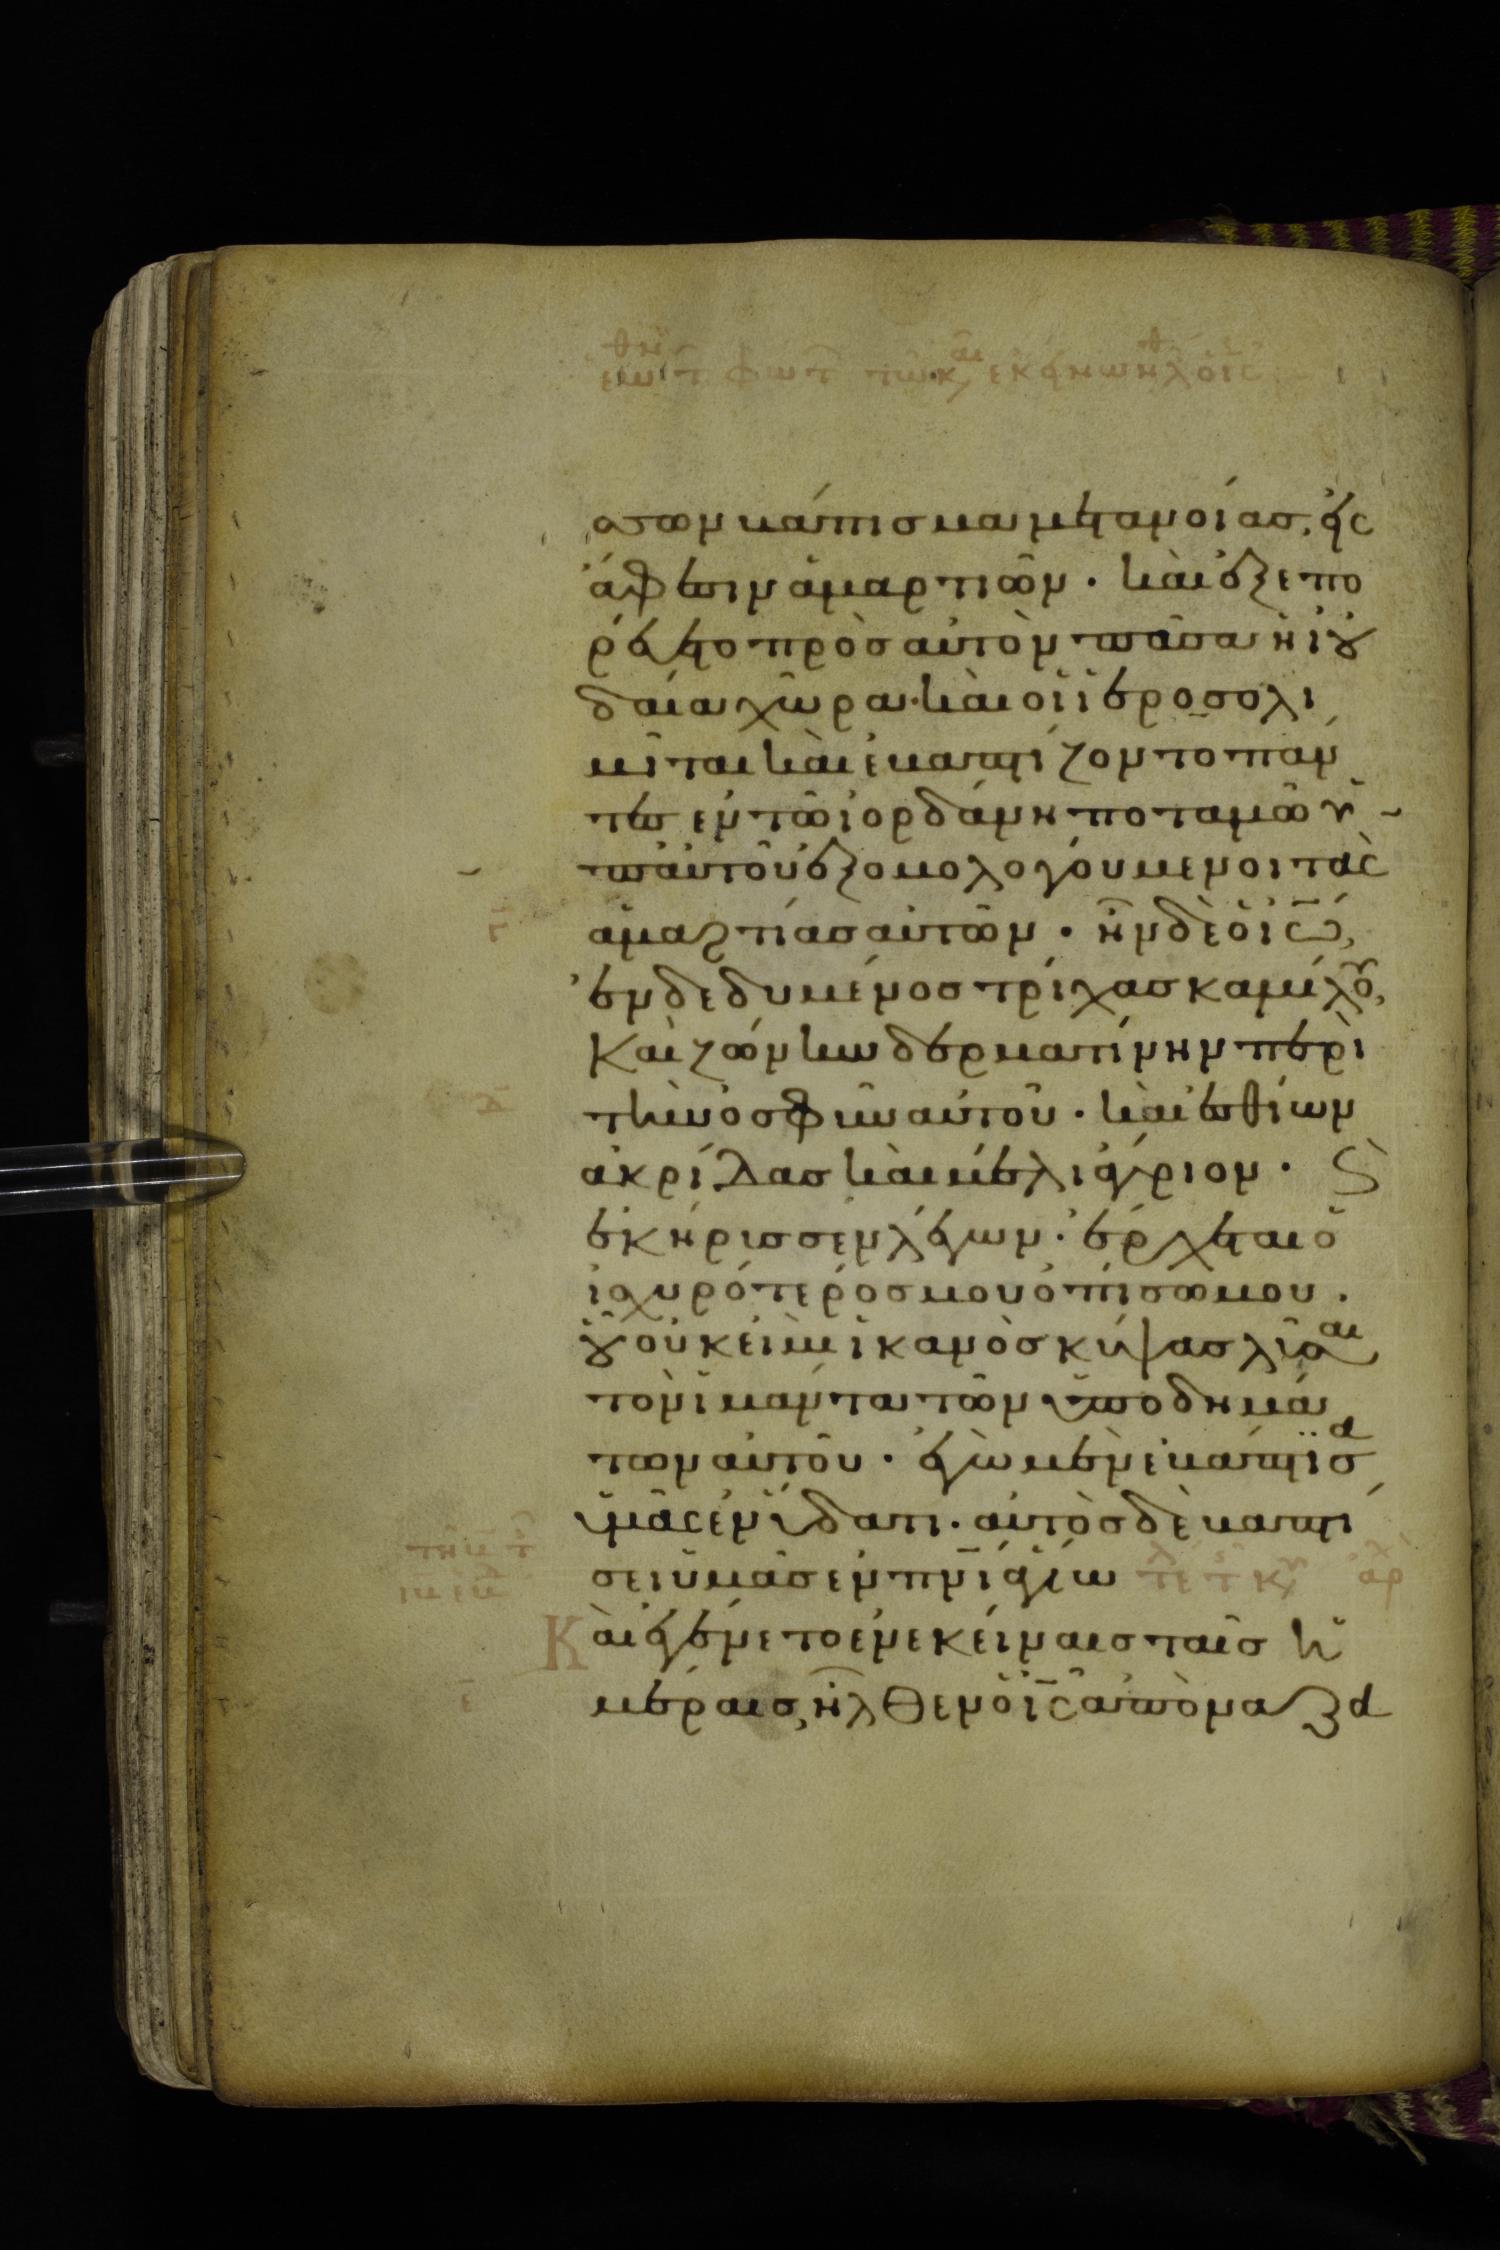 σσων βάπτισμα μετανοίας, εἰς
ἄφεσιν ἁμαρτιῶν · καὶ ἐξεπο
ρεύετο πρὸς αὐτὸν πᾶσα ἡ ἰου
δαία χώρα · καὶ οἱ ἱεροσολι
μῖται καὶ ἐβαπτίζοντο πάν
τες ἐν τῶ ἰορδάνη ποταμῶ ὑ
π' αὐτοῦ ἐξομολογούμενοι τὰς
ἁμαρτίας αὐτῶν · ἦν δὲ ὁ ἰω,
ἐνδεδυμένος τρίχας καμήλου,
Καὶ ζώνην δερματίνην περὶ
τὴν ὀσφῦν αὐτοῦ · καὶ ἐσθίων
ἀκρίδας καὶ μέλι ἄγριον · Ϛ
ἐκήρισσεν λέγων · ἔρχεται ὁ
ἰσχυρότερός μου ὀπίσω μου ·
οὗ οὐκ εἰμὶ ἱκανὸς κύψας λῦσαι
τὸν ἱμάντα τῶν ὑποδημά
των αὐτοῦ · ἐγὼ μὲν ἐβάπτισα
ὑμᾶς ἐν ὕδατι · αὐτὸς δὲ βαπτί
σει ὑμᾶς ἐν πνι ἁγίω
Καὶ ἐγένετο ἐν ἐκείναις ταῖς ἡ
μέραις, ἦλθεν ὁ ις ἀπὸ ναζα